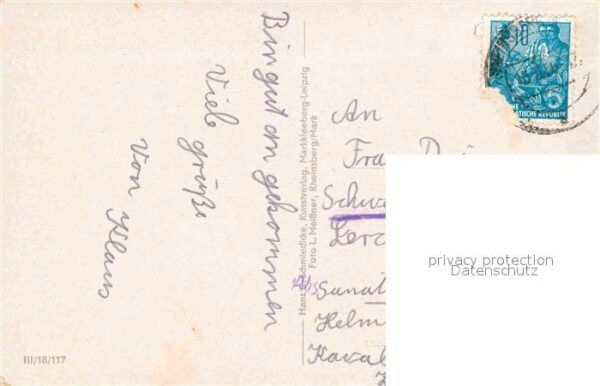 Bin gut an gekommen
Viele grüße
von Klaus
Hans
Schmiedicke, Kunstverlag, Markkleeberg-Leipzig
Foto L. Meißner, Rheinsberg/Mark
An
Schw
Lerc
Abs
Sanat
Helm
Kaval
III/18/117
10
5
TISCHE REPUBLIK
privacy protection
Datenschutz